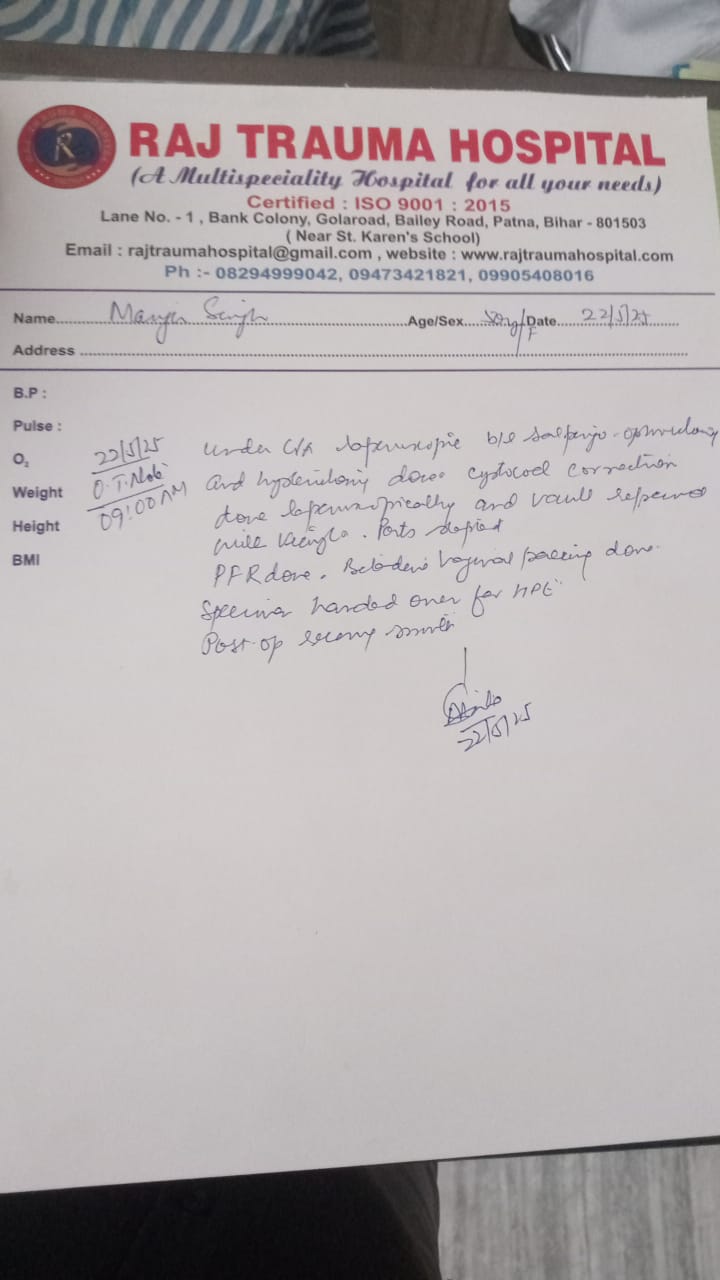 RAJ TRAUMA HOSPITAL
(A Multispeciality Hospital for all your needs)
Certified : ISO 9001 : 2015
Lane No. - 1 , Bank Colony, Golaroad, Bailey Road, Patna, Bihar - 801503
( Near St. Karen's School)
Email : rajtraumahospital@gmail.com , website : www.rajtraumahospital.com
Ph :- 08294999042, 09473421821, 09905408016
Name Singh Age/Sex F Date 22/5/25
Address
B.P :
Pulse :
O2
Weight
Height
BMI
22/5/25
O.T. Note
09:00 AM
under laparoscopic b/l salpingo-
and done cystocoel correction
done laparoscopically and vault
. Ports
PFR done. Betadene vaginal packing done.
Specimen handed over for HPE
Post-op
22/5/25